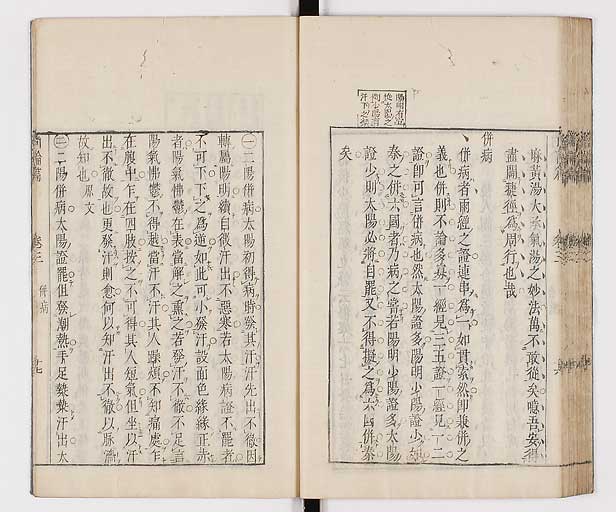 麻黃湯大承氣湯之妙法萬不敢從矣噫吾安得
盡闢蓁徑為周行也哉
併病
併病者兩經之證連串為一如貫索然即兼併之
義也併則不論多寡一經見三五證一經見一二
證即可言併病也然太陽證多陽明少陽證少如
秦之併六國者乃病之常若陽明少陽證多太陽
證少則太陽必將自罷又不得擬之為六國併秦
矣
一二陽併病太陽初得病時發其汗汗先出不徹因
轉屬陽明續自微汗出不惡寒若太陽病證不罷者
不可下下之為逆如此可小發汗設面色緣緣正赤
者陽氣怫鬱在表當解之熏之若發汗不徹不足言
陽氣怫鬱不得越當汗不汗其人躁煩不知痛處乍
在腹中乍在四肢按之不可得其人短氣但坐以汗
出不徹故也更發汗則愈何以知汗出不徹以脈濇
故知也 原文
二二陽併病太陽證罷但發潮熱手足漐漐汗出大
尚論篇 卷三 併病